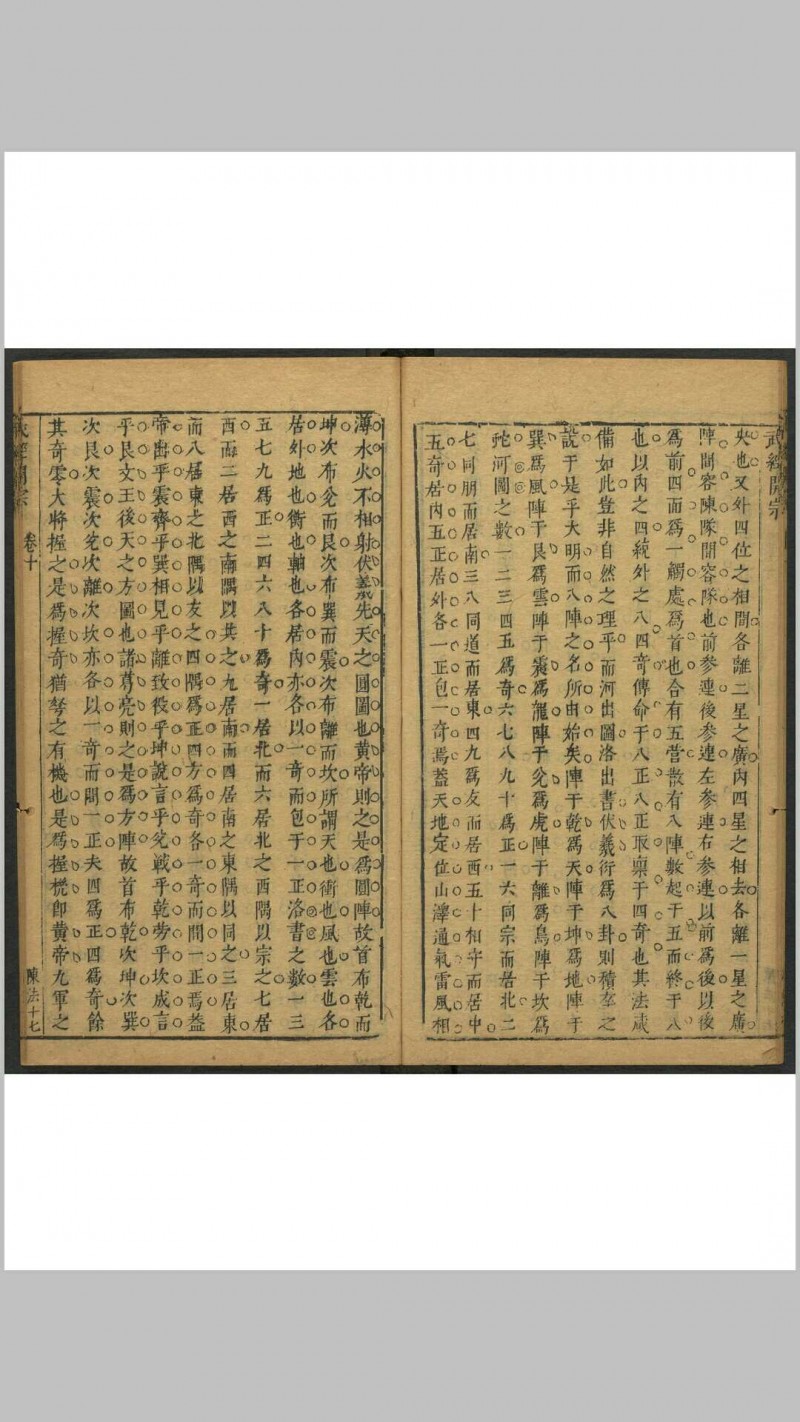 武經開宗
夾也又外四位之相間各離二星之廣內四星之相去各離一星之廣
陣間容陳隊間容隊也前參連後參連左參連右參連以前爲後以後
爲前四面爲一觸處爲首也合有五營散有八陣數起于五而終于八
也以內之四統外之八四奇傳命于八正八正取稟于四奇也其法咸
備如此豈非自然之理乎而河出圖洛出書伏羲衍爲八卦則積卒之
說于是乎大明而八陣之名所由始矣陣于乾爲天陣于坤爲地陣于
巽爲風陣于艮爲雲陣于震爲龍陣于兌爲虎陣于離爲鳥陣于坎爲
蛇河圖之數一二三四五爲奇六七八九十爲正一六同宗而居北二
七同朋而居南三八同道而居東四九爲友而居西五十相守而居中
五奇居內五正居外各一正包一奇焉蓋天地定位山澤通氣雷風相
薄水火不相射伏羲先天之圓圖也黃帝則之是爲圓陣故首布乾而
坤次布兌而艮次布巽而震次布離而坎所謂天也衝也風也雲也各
居外地也衝也軸也各居內亦各以一奇而包于一正洛書之數一三
五七九爲正二四六八十爲奇一居北而六居北之西隅以宗之七居
西而二居西之南隅以共之九居南而四居南之東隅以同之三居東
而八居東之北隅以友之四隅爲正四方爲奇各一奇而間一正焉蓋
帝出乎震齊乎巽相見乎離致役乎坤說言乎兌戰乎乾勞乎坎成言
乎艮文王後天之方圖也諸葛亮則之是爲方陣故首布乾次坤次巽
次艮次震次兌次離次坎亦各以一奇而間一正夫四爲正四爲奇餘
其奇零大將握之是爲握奇猶弩之有機也是爲握機卽黃帝九軍之
武經開宗
卷十
陳法十七